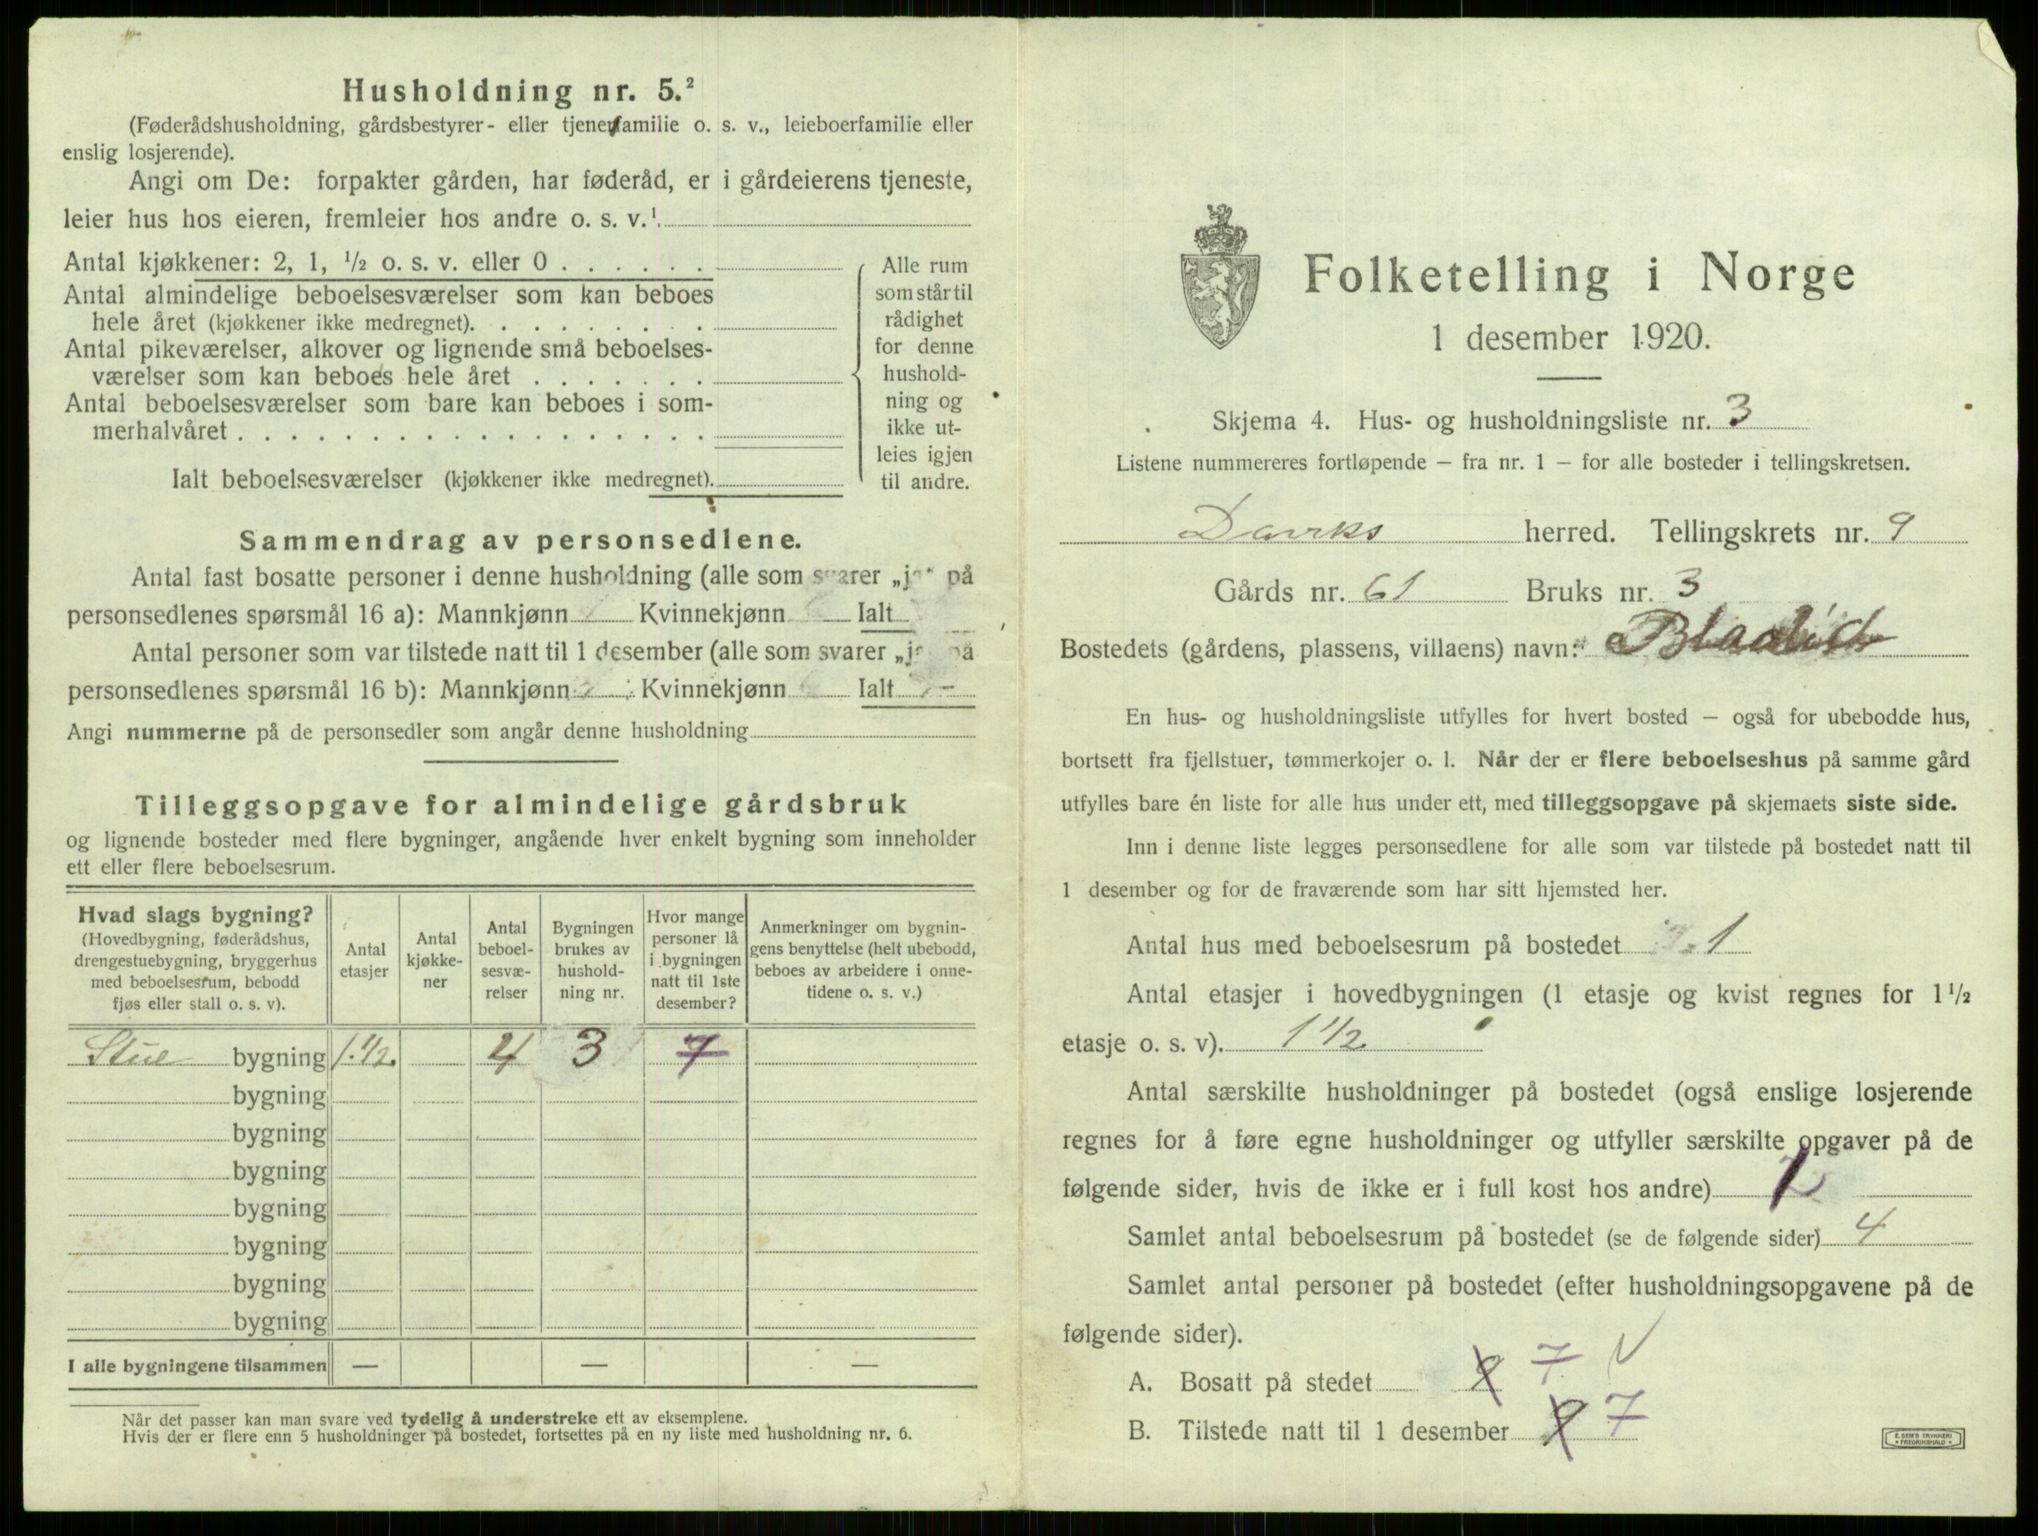 Husholdning nr. 5.²
(Føderådshusholdning, gårdsbestyrer- eller tjenerfamilie o. s. v., leieboerfamilie eller
enslig losjerende).
Angi om De: forpakter gården, har føderåd, er i gårdeierens tjeneste,
leier hus hos eieren, fremleier hos andre o. s. v.¹
Antal kjøkkener: 2, 1, ½ o. s. v. eller 0 . . . . . .
Antal almindelige beboelsesværelser som kan beboes
hele året (kjøkkener ikke medregnet). . . . . . . . .
Antal pikeværelser, alkover og lignende små beboelses-
værelser som kan beboes hele året . . . . . . .
Antal beboelsesværelser som bare kan beboes i som-
merhalvåret . . . . . . . . . . . . . . . . . .
Ialt beboelsesværelser (kjøkkener ikke medregnet).
Alle rum
som står til
rådighet
for denne
hushold-
ning og
ikke ut-
leies igjen
til andre.
Sammendrag av personsedlene.
Antal fast bosatte personer i denne husholdning (alle som svarer „ja“ på
personsedlenes spørsmål 16 a): Mannkjønn Kvinnekjønn Ialt
Antal personer som var tilstede natt til 1 desember (alle som svarer „ja“ på
personsedlenes spørsmål 16 b): Mannkjønn Kvinnekjønn Ialt
Angi nummerne på de personsedler som angår denne husholdning
Tilleggsopgave for almindelige gårdsbruk
og lignende bosteder med flere bygninger, angående hver enkelt bygning som inneholder
ett eller flere beboelsesrum.
Hvad slags bygning?
(Hovedbygning, føderådshus,
drengestuebygning, bryggerhus
med beboelsesrum, bebodd
fjøs eller stall o. s. v).
Antal
etasjer
Antal
kjøkke-
ner
Antal
beboel-
sesvæ-
relser
Bygningen
brukes av
hushold-
ning nr.
Hvor mange
personer lå
i bygningen
natt til 1ste
desember?
Anmerkninger om bygnin-
gens benyttelse (helt ubebodd,
beboes av arbeidere i onne-
tidene o. s. v.)
Stue bygning 1.½ 4 3 7
bygning
bygning
bygning
bygning
bygning
bygning
bygning
I alle bygningene tilsammen — — —
Når det passer kan man svare ved tydelig å understreke ett av eksemplene.
Hvis der er flere enn 5 husholdninger på bostedet, fortsettes på en ny liste med husholdning nr. 6.
Folketelling i Norge
1 desember 1920.
Skjema 4. Hus- og husholdningsliste nr. 3
Listene nummereres fortløpende – fra nr. 1 – for alle bosteder i tellingskretsen.
herred. Tellingskrets nr. 9
Gårds nr. 61 Bruks nr. 3
Bostedets (gårdens, plassens, villaens) navn:
En hus- og husholdningsliste utfylles for hvert bosted – også for ubebodde hus,
bortsett fra fjellstuer, tømmerkojer o. l. Når der er flere beboelseshus på samme gård
utfylles bare én liste for alle hus under ett, med tilleggsopgave på skjemaets siste side.
Inn i denne liste legges personsedlene for alle som var tilstede på bostedet natt til
1 desember og for de fraværende som har sitt hjemsted her.
Antal hus med beboelsesrum på bostedet 1
Antal etasjer i hovedbygningen (1 etasje og kvist regnes for 1½
etasje o. s. v). 1½
Antal særskilte husholdninger på bostedet (også enslige losjerende
regnes for å føre egne husholdninger og utfyller særskilte opgaver på de
følgende sider, hvis de ikke er i full kost hos andre) 1
Samlet antal beboelsesrum på bostedet (se de følgende sider) 4
Samlet antal personer på bostedet (efter husholdningsopgavene på de
følgende sider).
A. Bosatt på stedet 7
B. Tilstede natt til 1 desember 7
E. SEMS TRYKKERI
• FREDRIKSHALD •